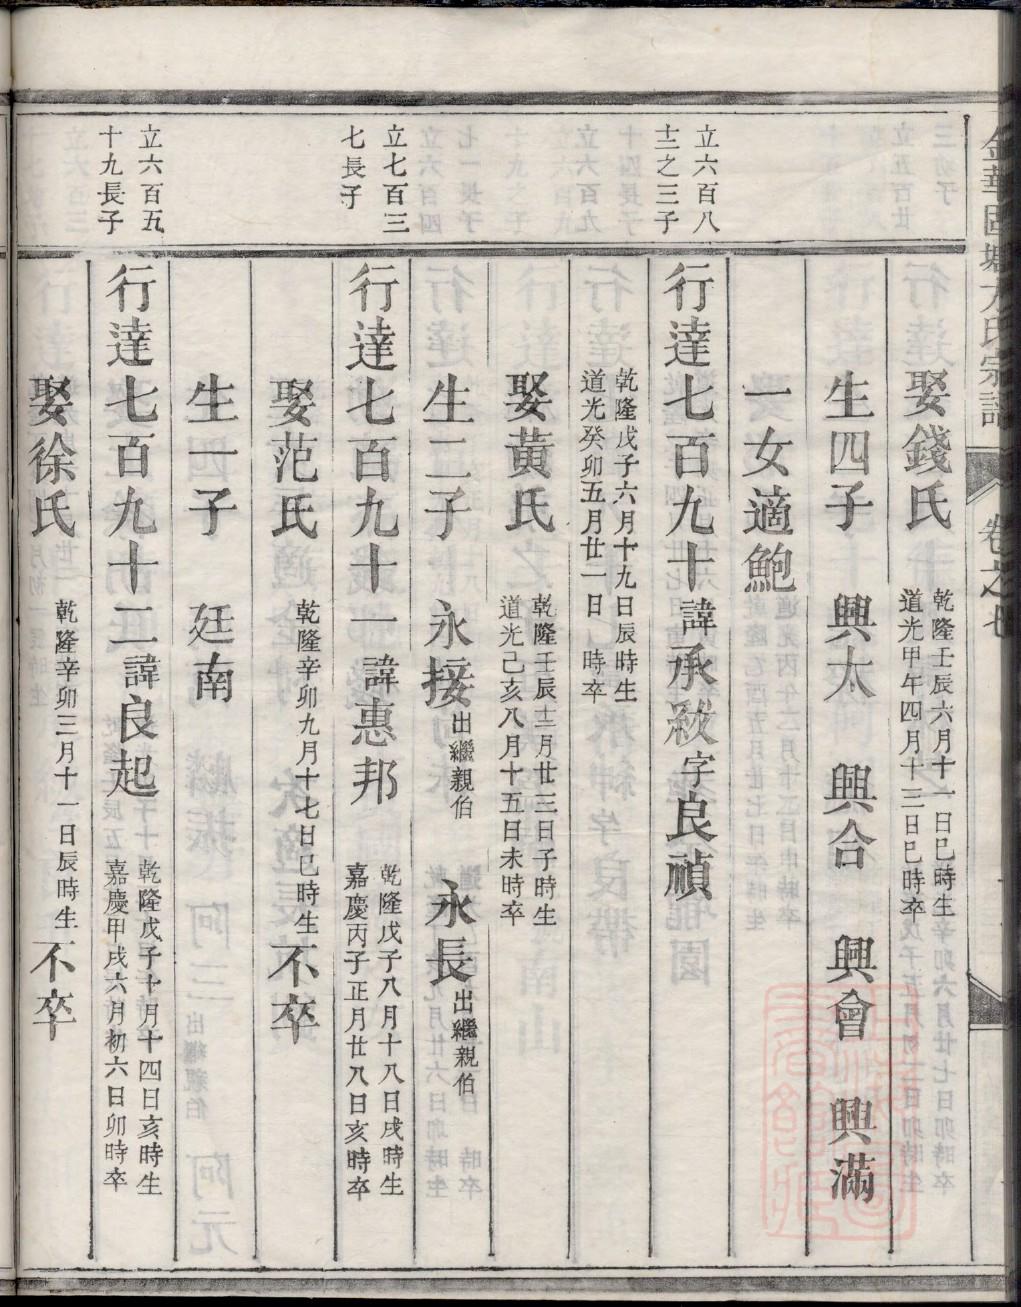 金華區塘方氏宗譜 卷之七
娶錢氏 乾隆壬辰六月十一日巳時生
道光甲午四月十三日巳時卒
生四子 興太 興合 興會 興滿
一女適鮑
立六百八
十二之三子
行達七百九十 諱承 字良禎
乾隆戊子六月十九日辰時生
道光癸卯五月廿一日 時卒
娶黃氏 乾隆壬辰十二月廿三日子時生
道光己亥八月十五日未時卒
生二子 永接 出繼親伯 永長 出繼親伯
立七百三
七長子
行達七百九十一 諱惠邦 乾隆戊子八月十八日戌時生
嘉慶丙子正月廿八日亥時卒
娶范氏 乾隆辛卯九月十七日巳時生 不卒
生一子 廷南
立六百五
十九長子
行達七百九十二 諱良起 乾隆戊子十月十四日亥時生
嘉慶甲戌六月初六日卯時卒
娶徐氏 乾隆辛卯三月十一日辰時生 不卒